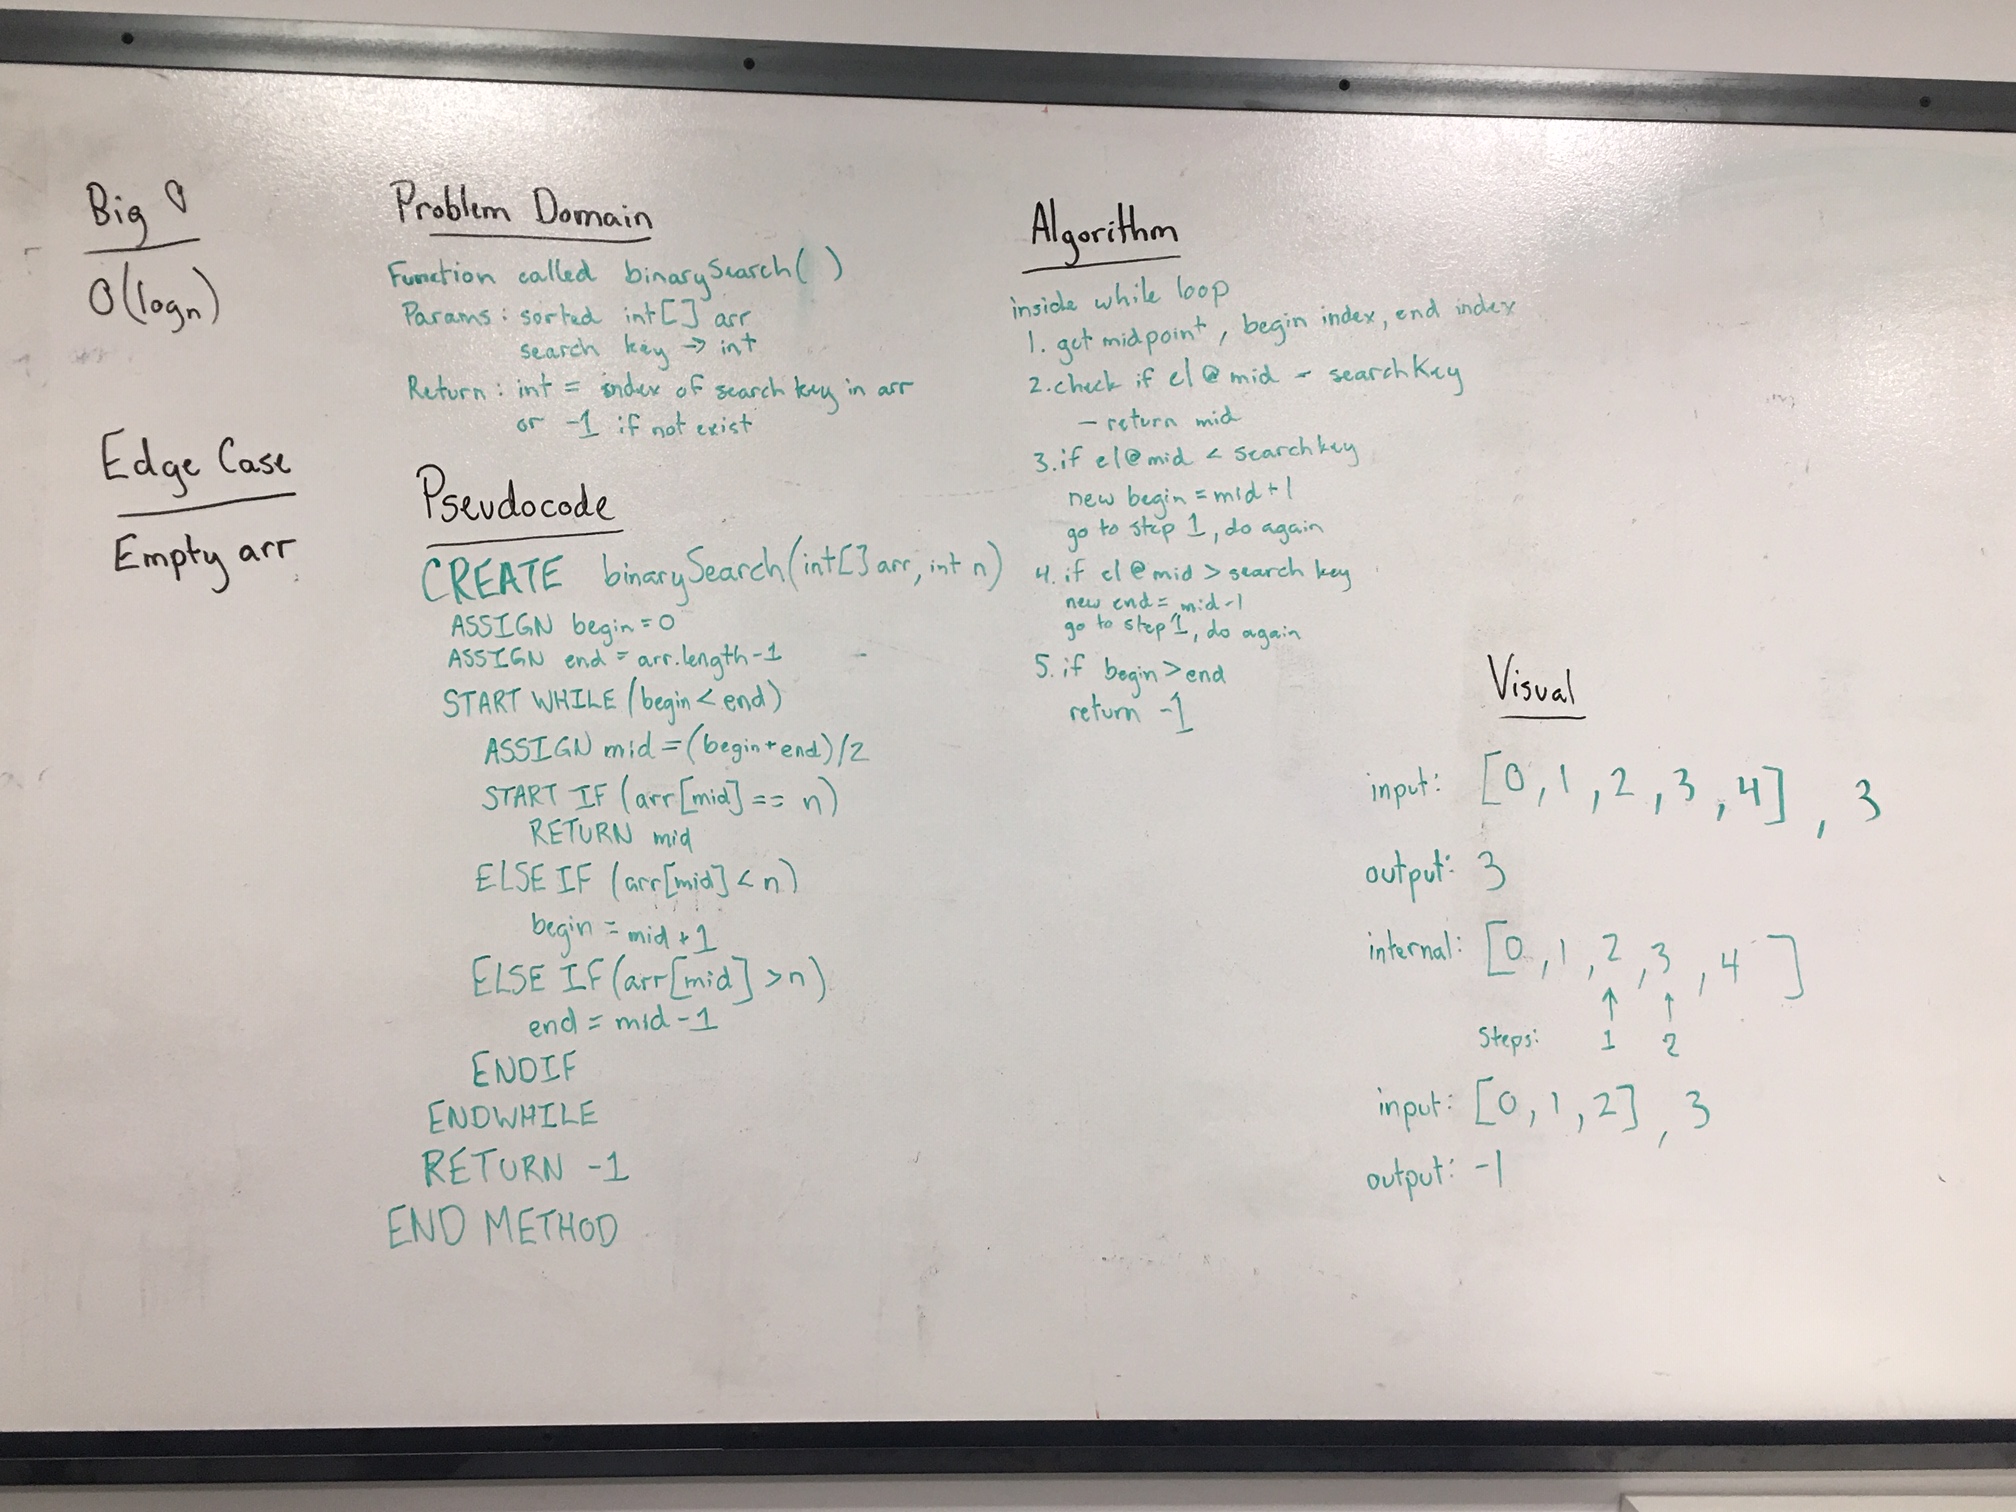 Big O
O(logn)
Edge Case
Empty arr
Problem Domain
Function called binarySearch( )
Params: sorted int[] arr
search key → int
Return: int = index of search key in arr
or -1 if not exist
Pseudocode
CREATE binarySearch(int[] arr, int n)
ASSIGN begin = 0
ASSIGN end = arr.length-1
START WHILE (begin < end)
ASSIGN mid = (begin+end)/2
START IF (arr[mid] == n)
RETURN mid
ELSE IF (arr[mid] < n)
begin = mid + 1
ELSE IF (arr[mid] > n)
end = mid - 1
ENDIF
ENDWHILE
RETURN -1
END METHOD
Algorithm
inside while loop
1. get midpoint, begin index, end index
2. check if el @ mid - searchKey
- return mid
3. if el@mid < searchkey
new begin = mid + 1
go to step 1, do again
4. if el@mid > search key
new end = mid-1
go to step 1, do again
5. if begin > end
return -1
Visual
input: [0, 1, 2, 3, 4], 3
output: 3
internal: [0, 1, 2, 3, 4 ]
↑ ↑
Steps: 1 2
input: [0, 1, 2], 3
output: -1